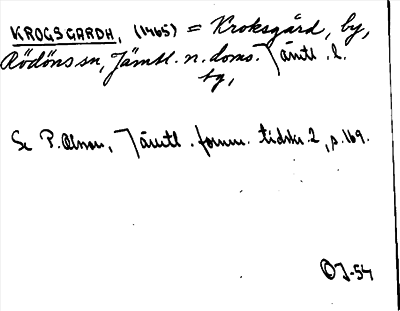 KROGSGARDH, (1465) = Kroksgård, by,
Rödöns sn, Jämtl. n. doms. Jämtl. l.
tg,
Se P. Olsson, Jämtl. fornm. tidskr. 2, s. 169.
OJ-54